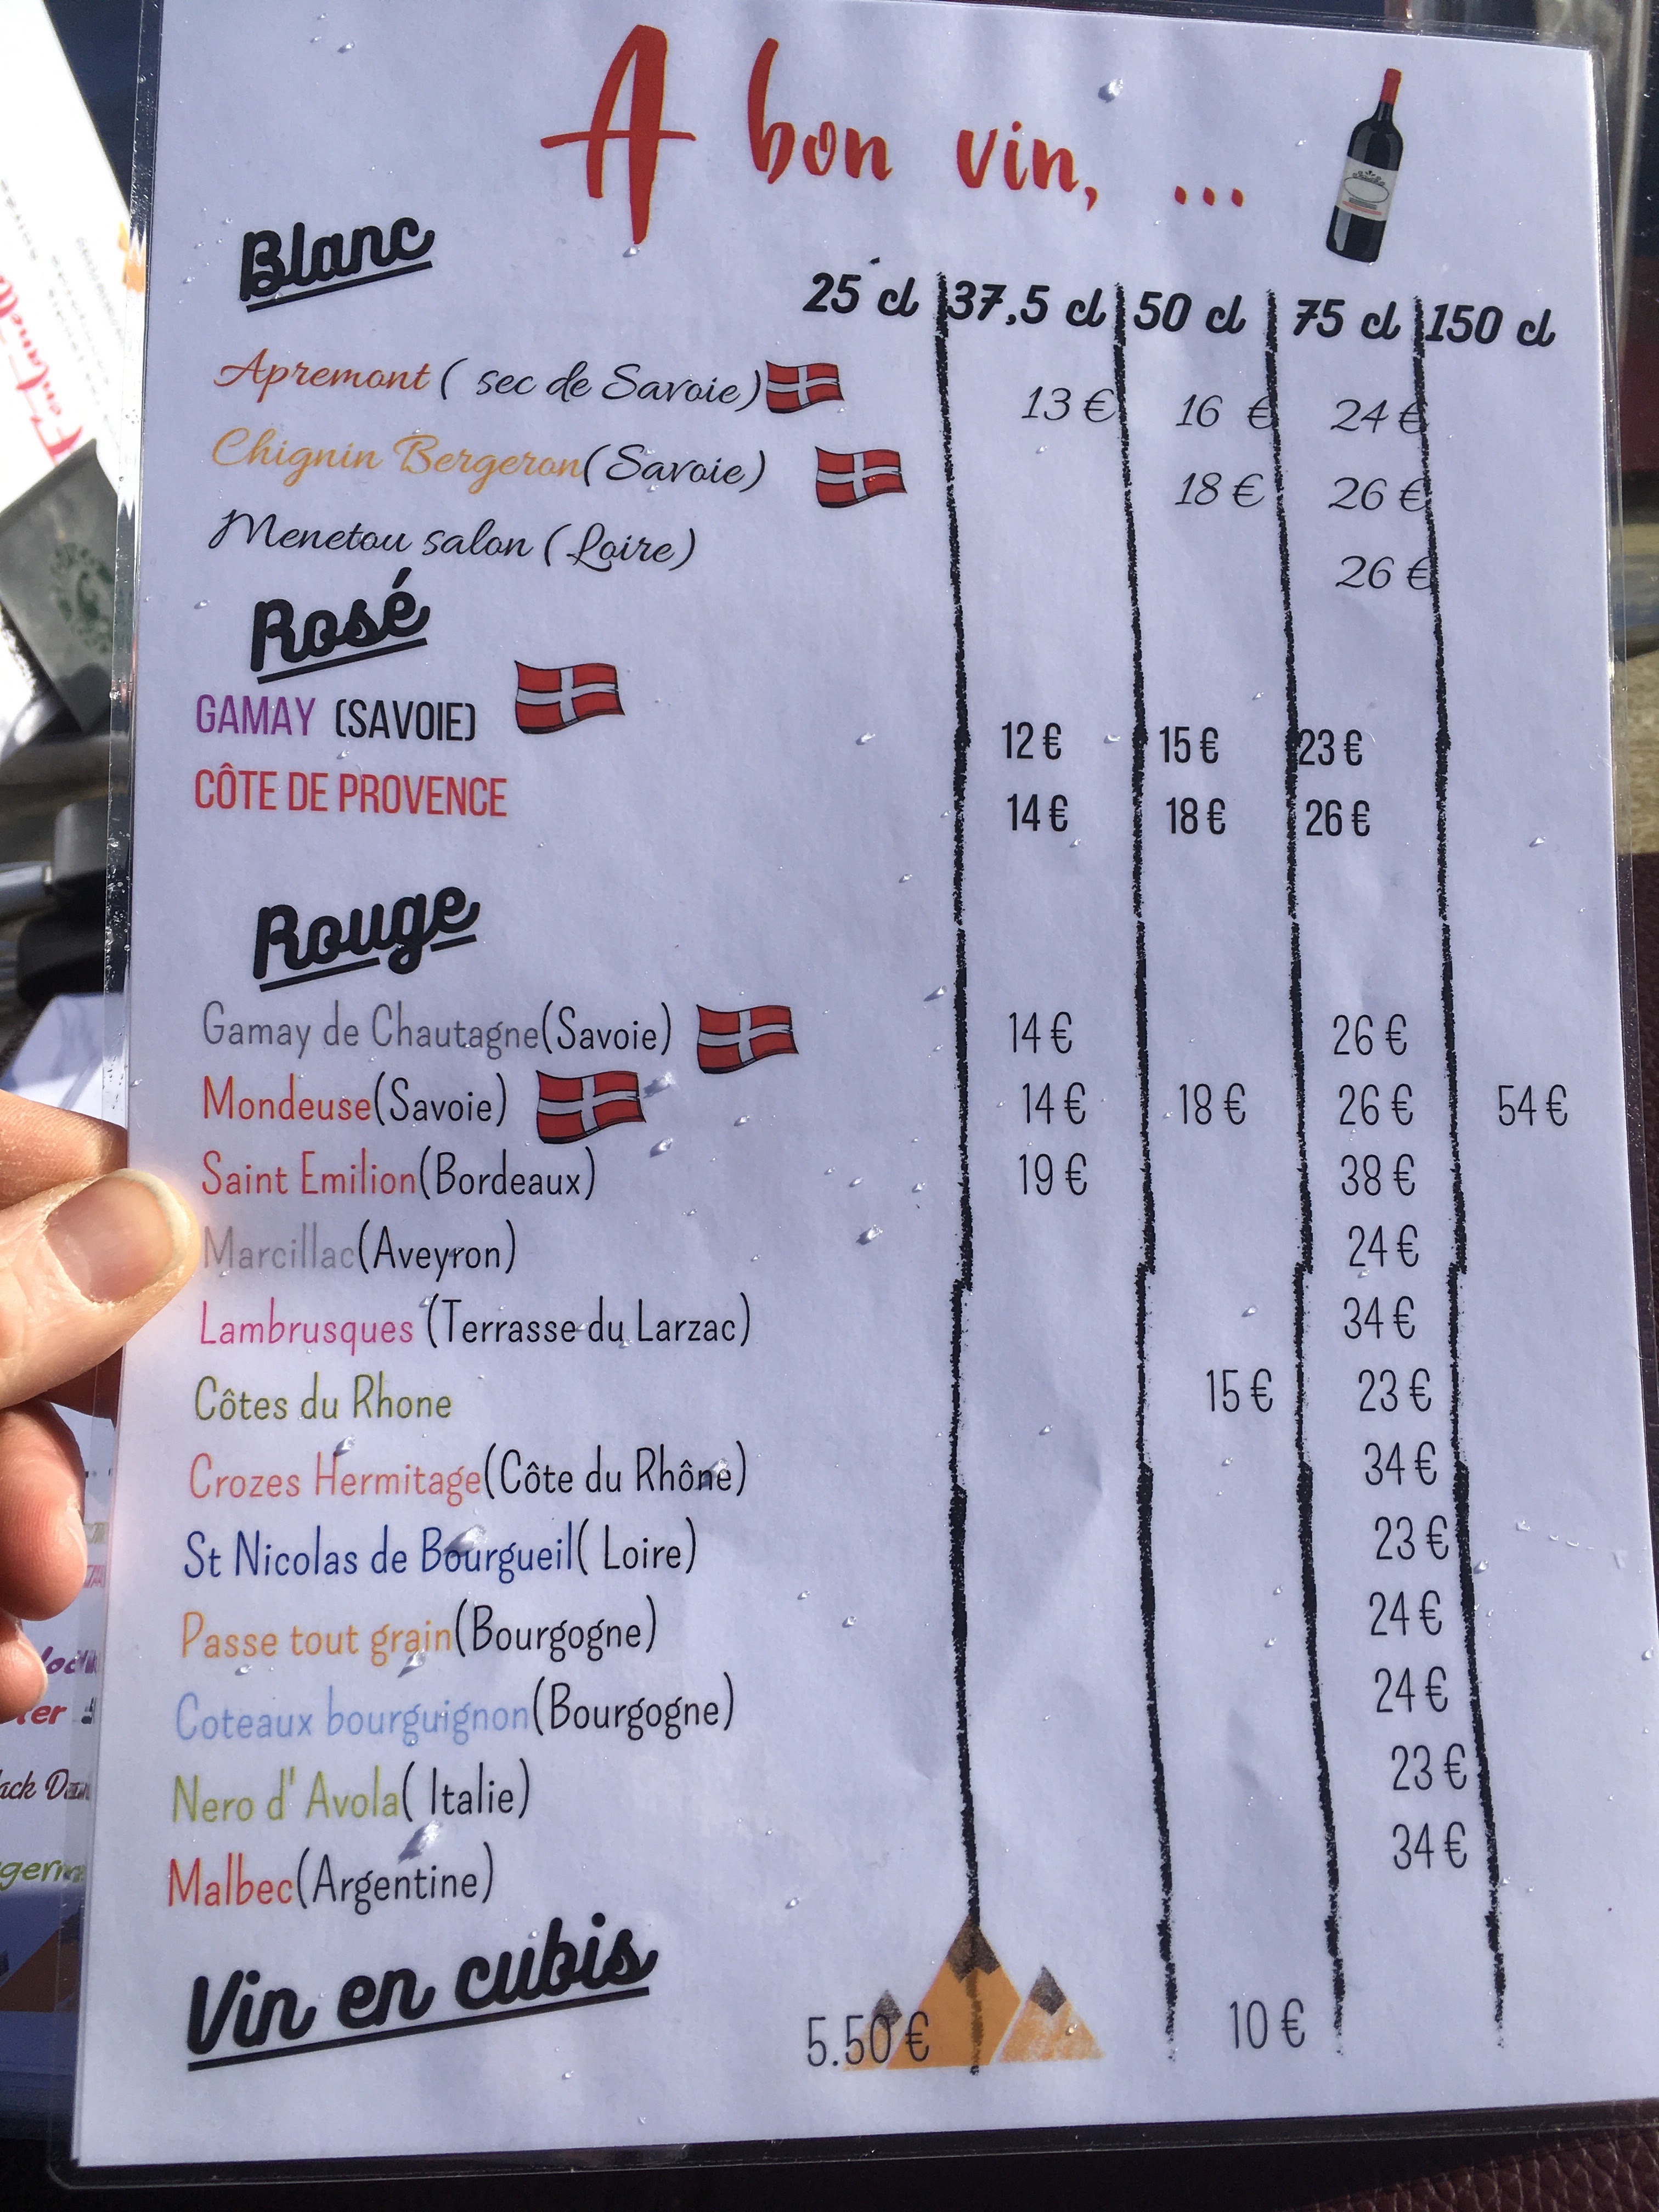 A bon vin, ...
Blanc
25 cl 37,5 cl 50 cl 75 cl 150 cl
Apremont ( sec de Savoie) 13 € 16 € 24 €
Chignin Bergeron(Savoie) 18 € 26 €
Menetou salon (Loire) 26 €
Rosé
GAMAY (SAVOIE) 12 € 15 € 23 €
CÔTE DE PROVENCE 14 € 18 € 26 €
Rouge
Gamay de Chautagne(Savoie) 14 € 26 €
Mondeuse(Savoie) 14 € 18 € 26 € 54 €
Saint Emilion(Bordeaux) 19 € 38 €
Marcillac(Aveyron) 24 €
Lambrusques (Terrasse du Larzac) 34 €
Côtes du Rhone 15 € 23 €
Crozes Hermitage(Côte du Rhône) 34 €
St Nicolas de Bourgueil( Loire) 23 €
Passe tout grain(Bourgogne) 24 €
Coteaux bourguignon(Bourgogne) 24 €
Nero d' Avola( Italie) 23 €
Malbec(Argentine) 34 €
Vin en cubis 5.50 € 10 €